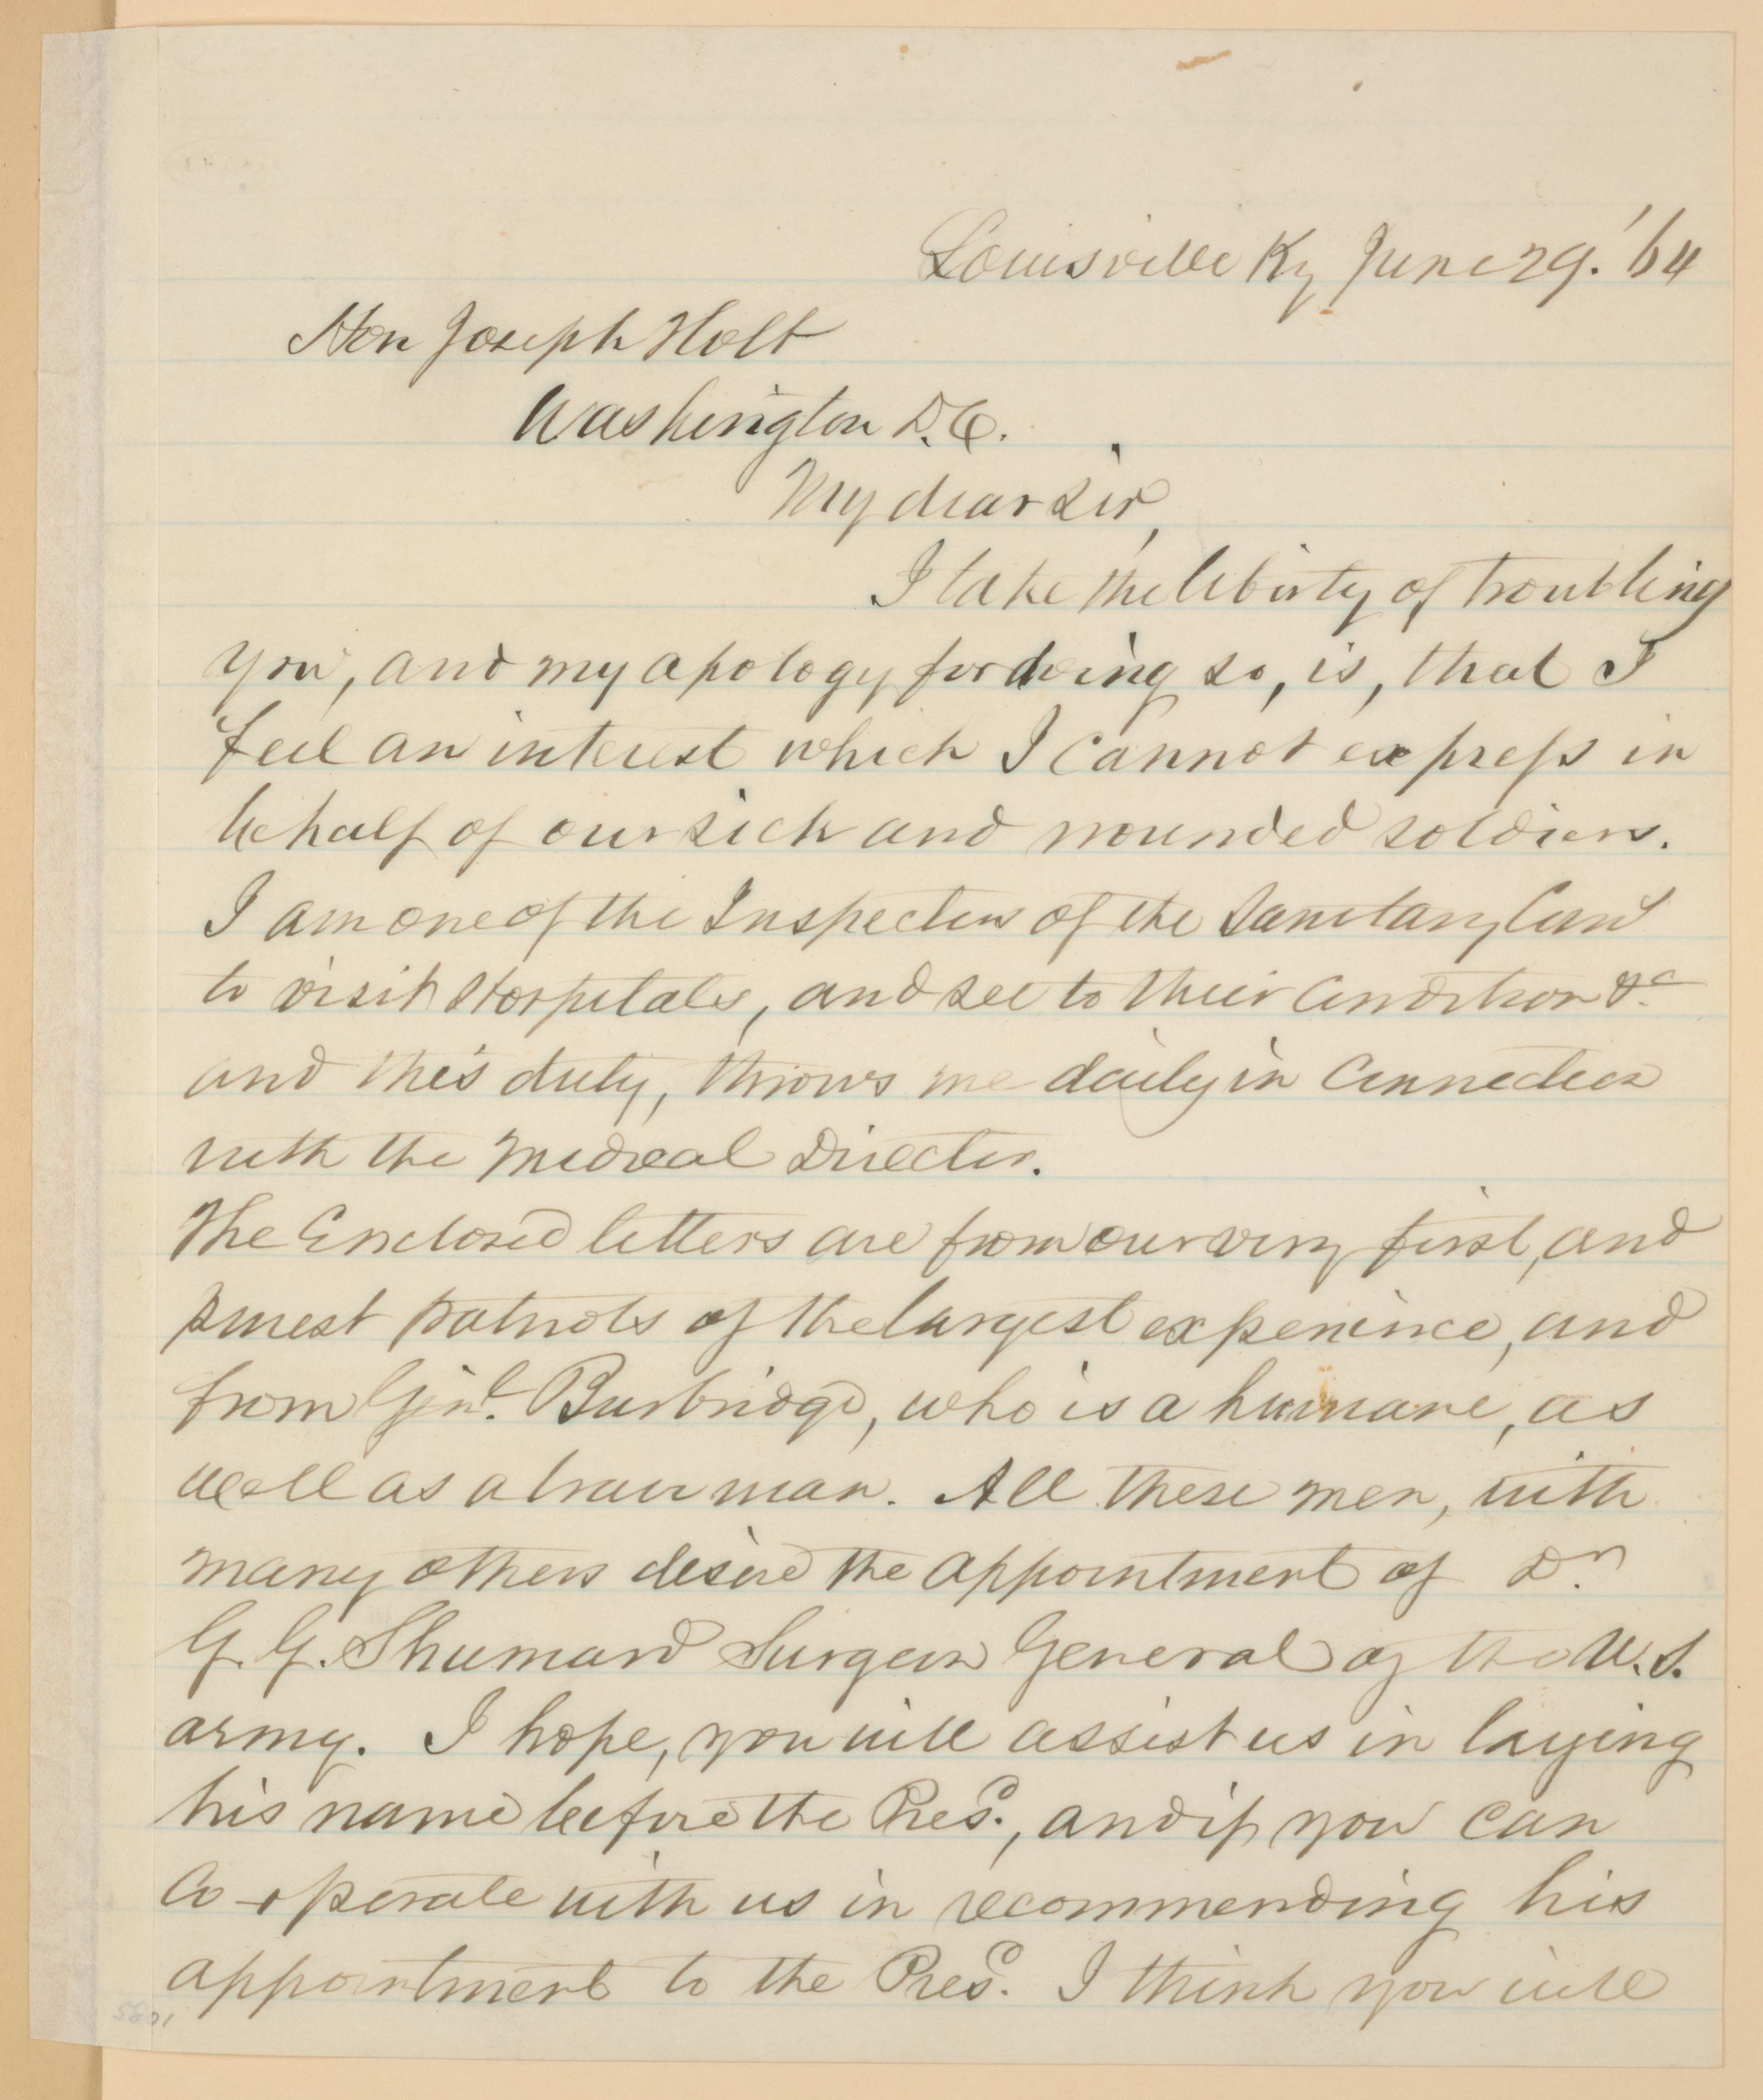 Louisville Ky June 29. '64
Hon Joseph Holt
Washington D.C.
My dear Sir,
I take the liberty of troubling
you, and my apology for doing so, is, that I
feel an interest which I cannot express in
behalf of our sick and wounded soldiers.
I am one of the Inspectors of the Sanitary Comn
to visit Hospitals, and see to their condition &c
and this duty, throws me daily in connection
with the Medical Director.
The Enclosed letters are from our very first, and
purest patriots of the largest experience, and
from Genl. Burbridge, who is a humane, as
well as a brave man. All these men, with
many others desire the appointment of Dr.
G. G. Shumard Surgeon General of the U.S.
army. I hope, you will assist us in laying
his name before the Prest., and if you can
Co-operate with us in recommending his
appointment to the Prest. I think you will